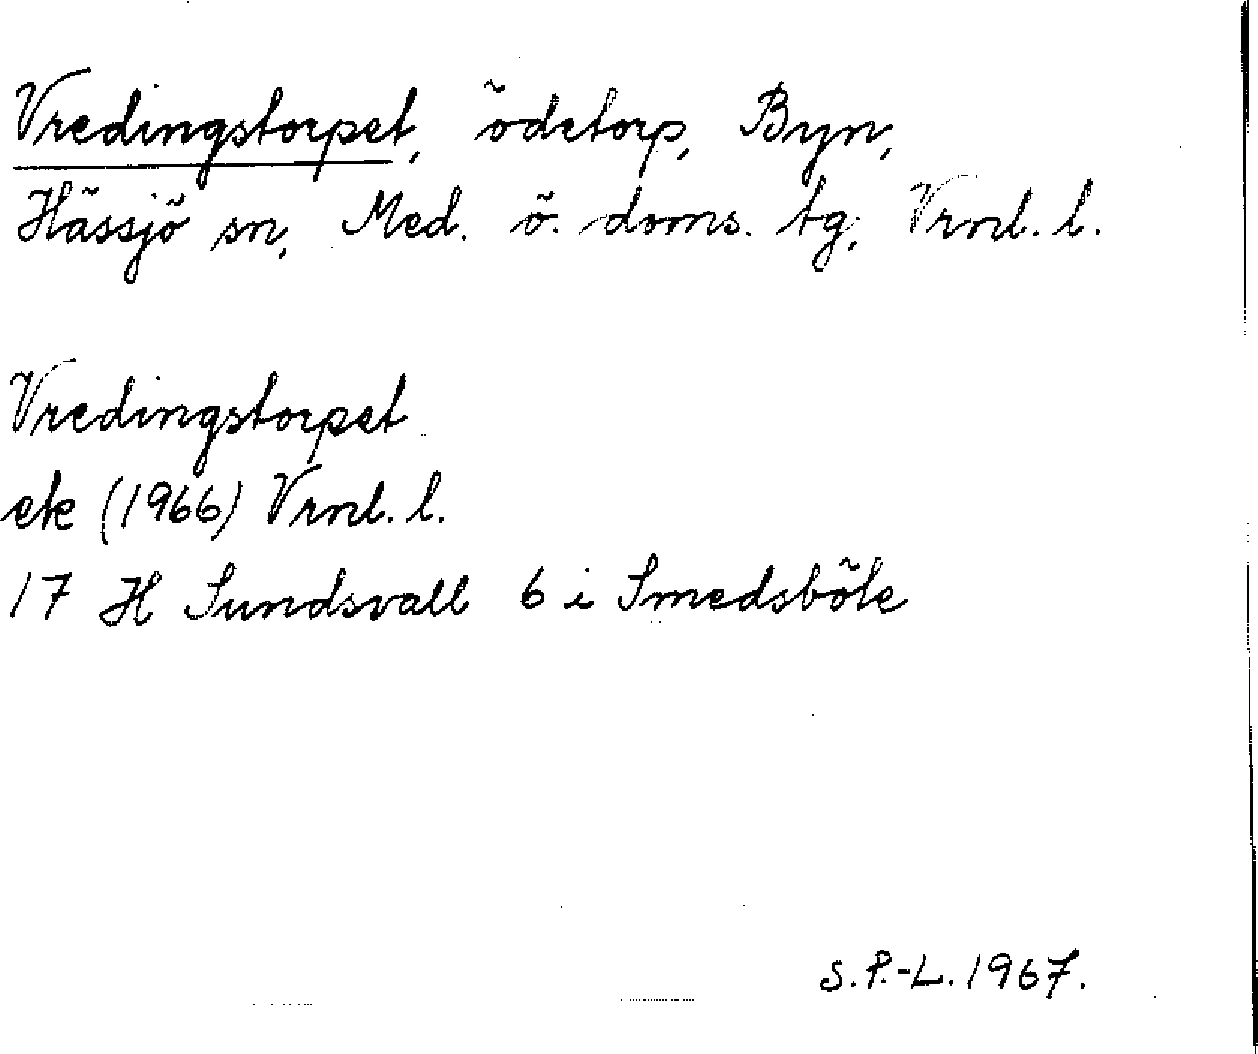 Vredingstorpet, ödetorp, Byn,
Hässjö sn, Med. ö. doms. tg; Vrnl. l.
Vredingstorpet
ek (1966) Vrnl. l.
17 H Sundsvall 6 i Smedsböle
S.P.-L. 1967.